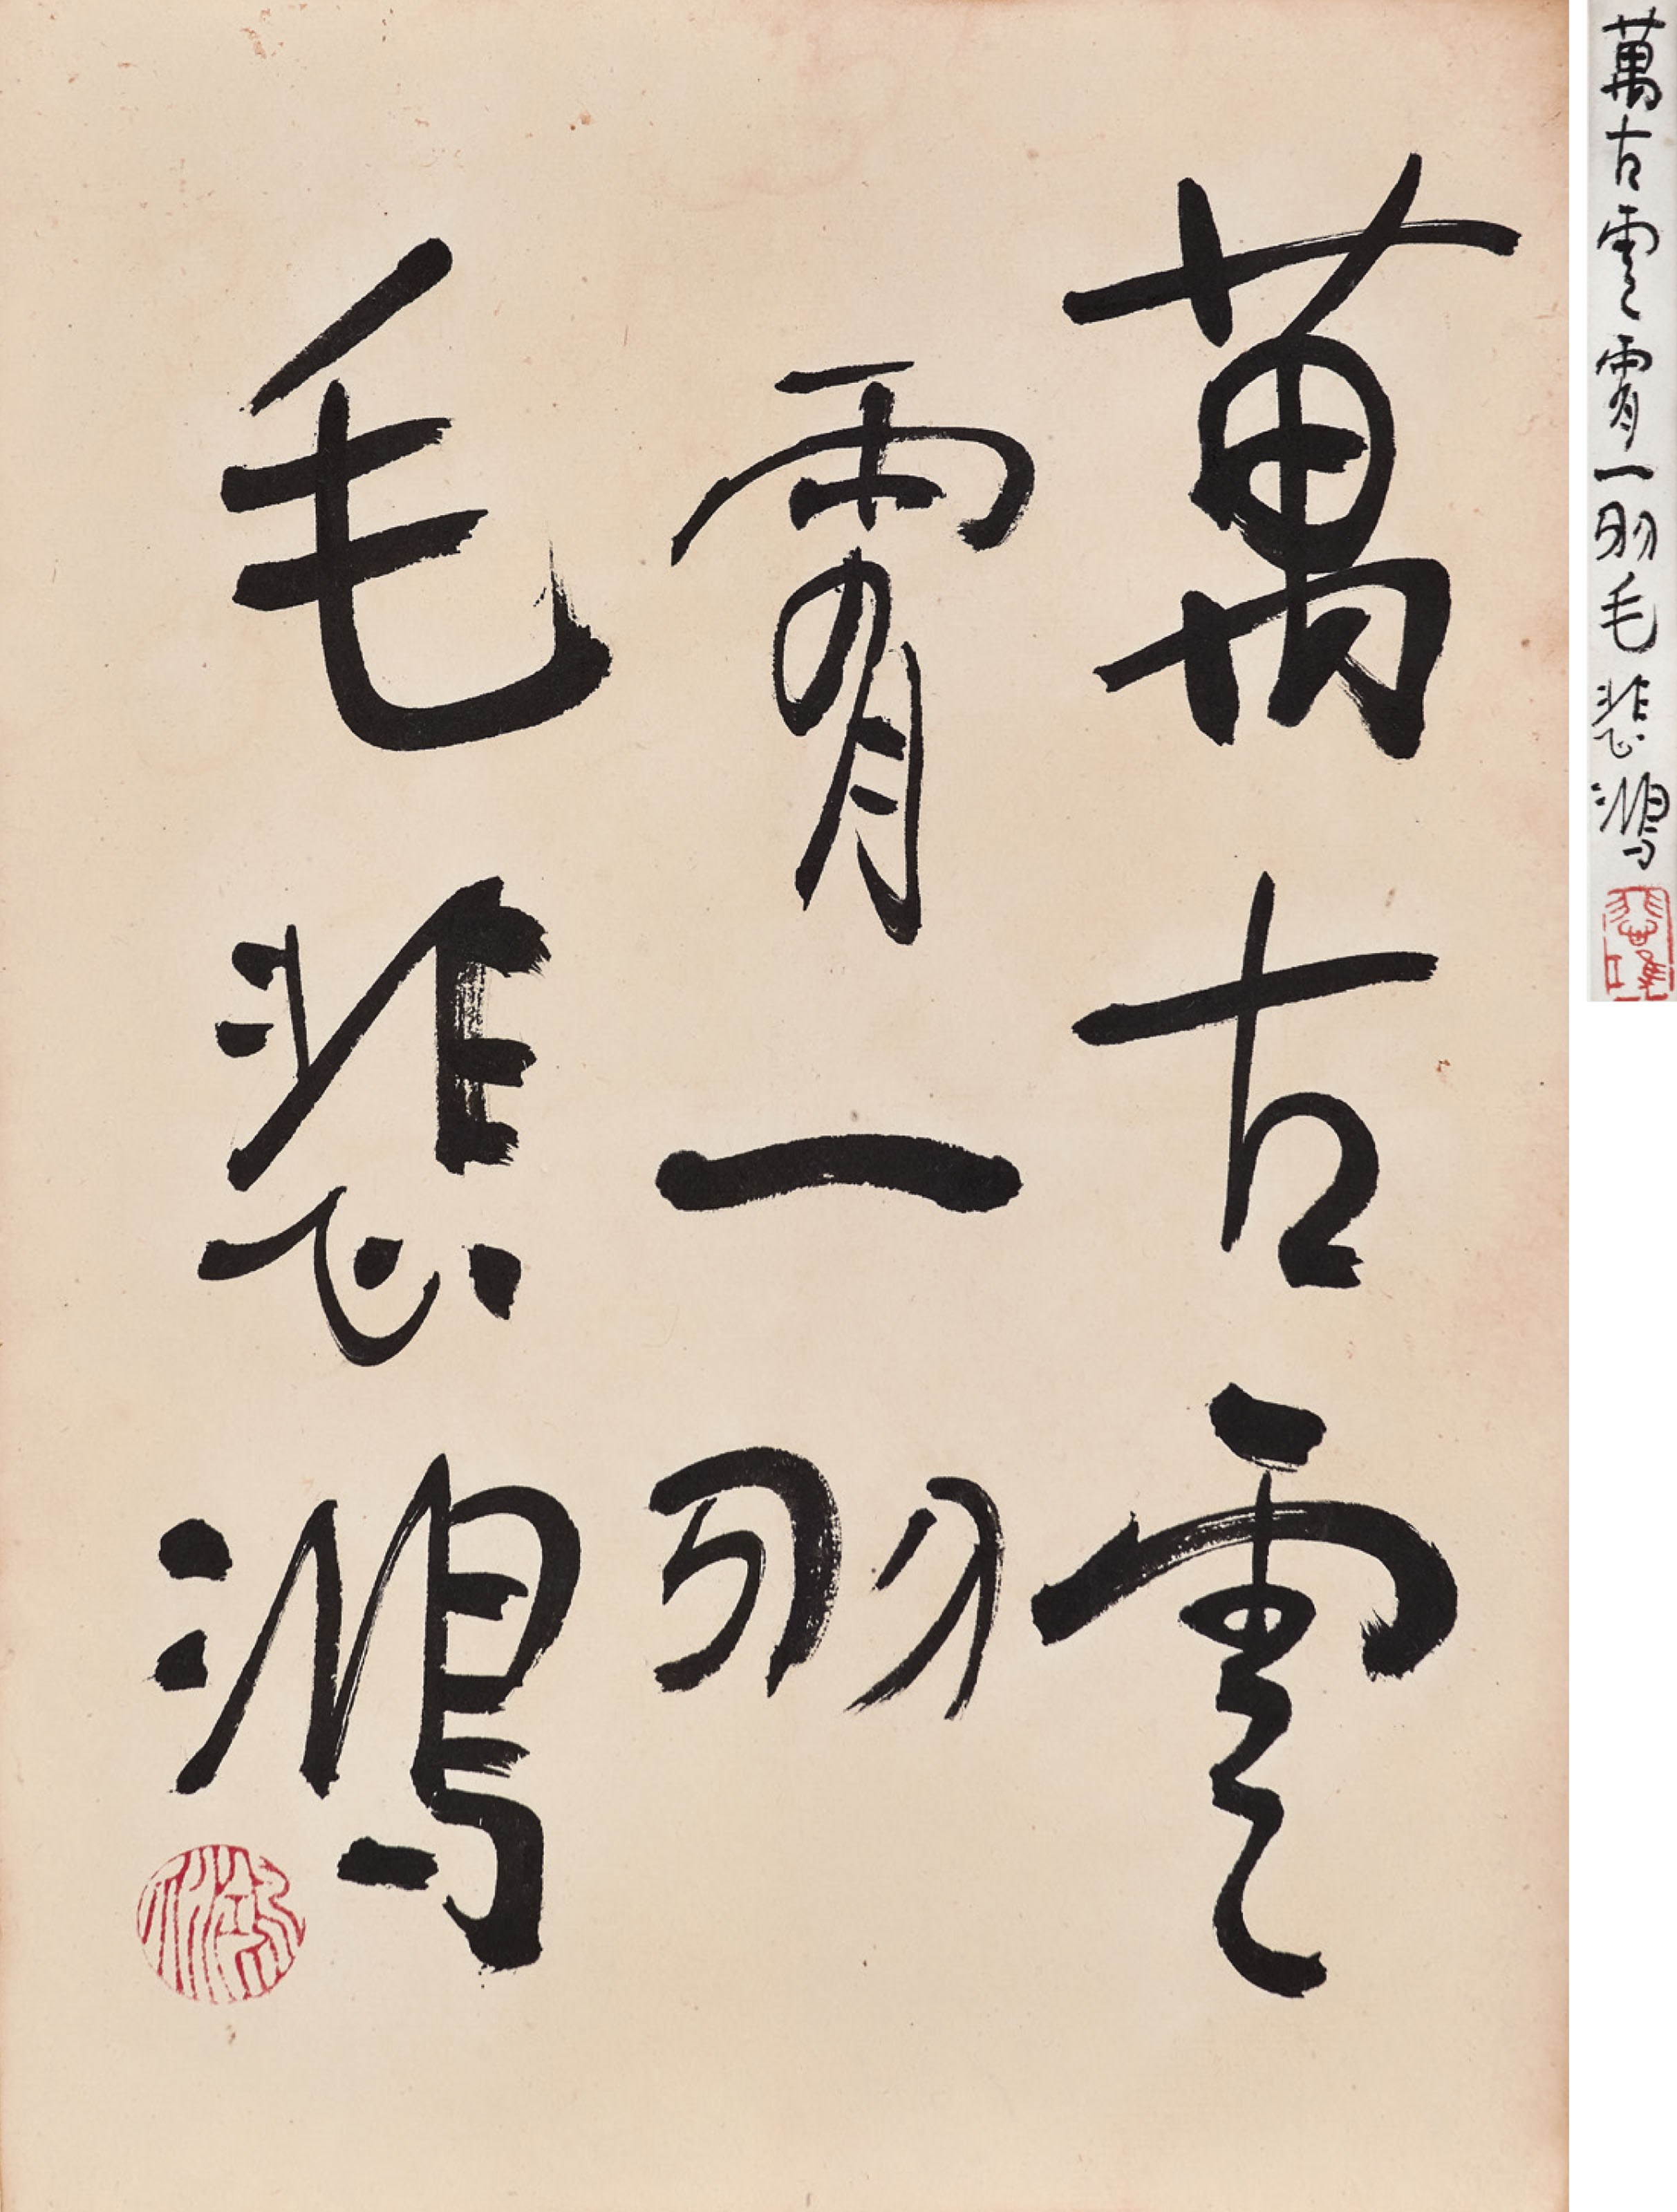 萬古雲
霄一羽
毛悲鴻
萬古雲霄一羽毛悲鴻